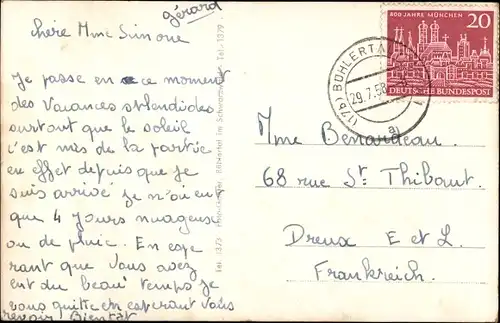 gérard
chère Mme Simone
Je passe en ce moment
des vacances splendides
surtout que le soleil
c'est mis de la partie
en effet depuis que je
suis arrivé je n'ai eu
que 4 jours nuageux
ou de pluie. En espe
rant que vous avez
ent du beau temps je
vous quitte en esperant vous
revoir Bientat
Mme Benardeau.
68 rue St Thibaut.
Dreux E et L.
Frankreich.
800 JAHRE MÜNCHEN
20
DEUTSCHE BUNDESPOST
(17b) BÜHLERTAL
29.7.58
a
Bühlertal im Schwarzwald Tel. 1379